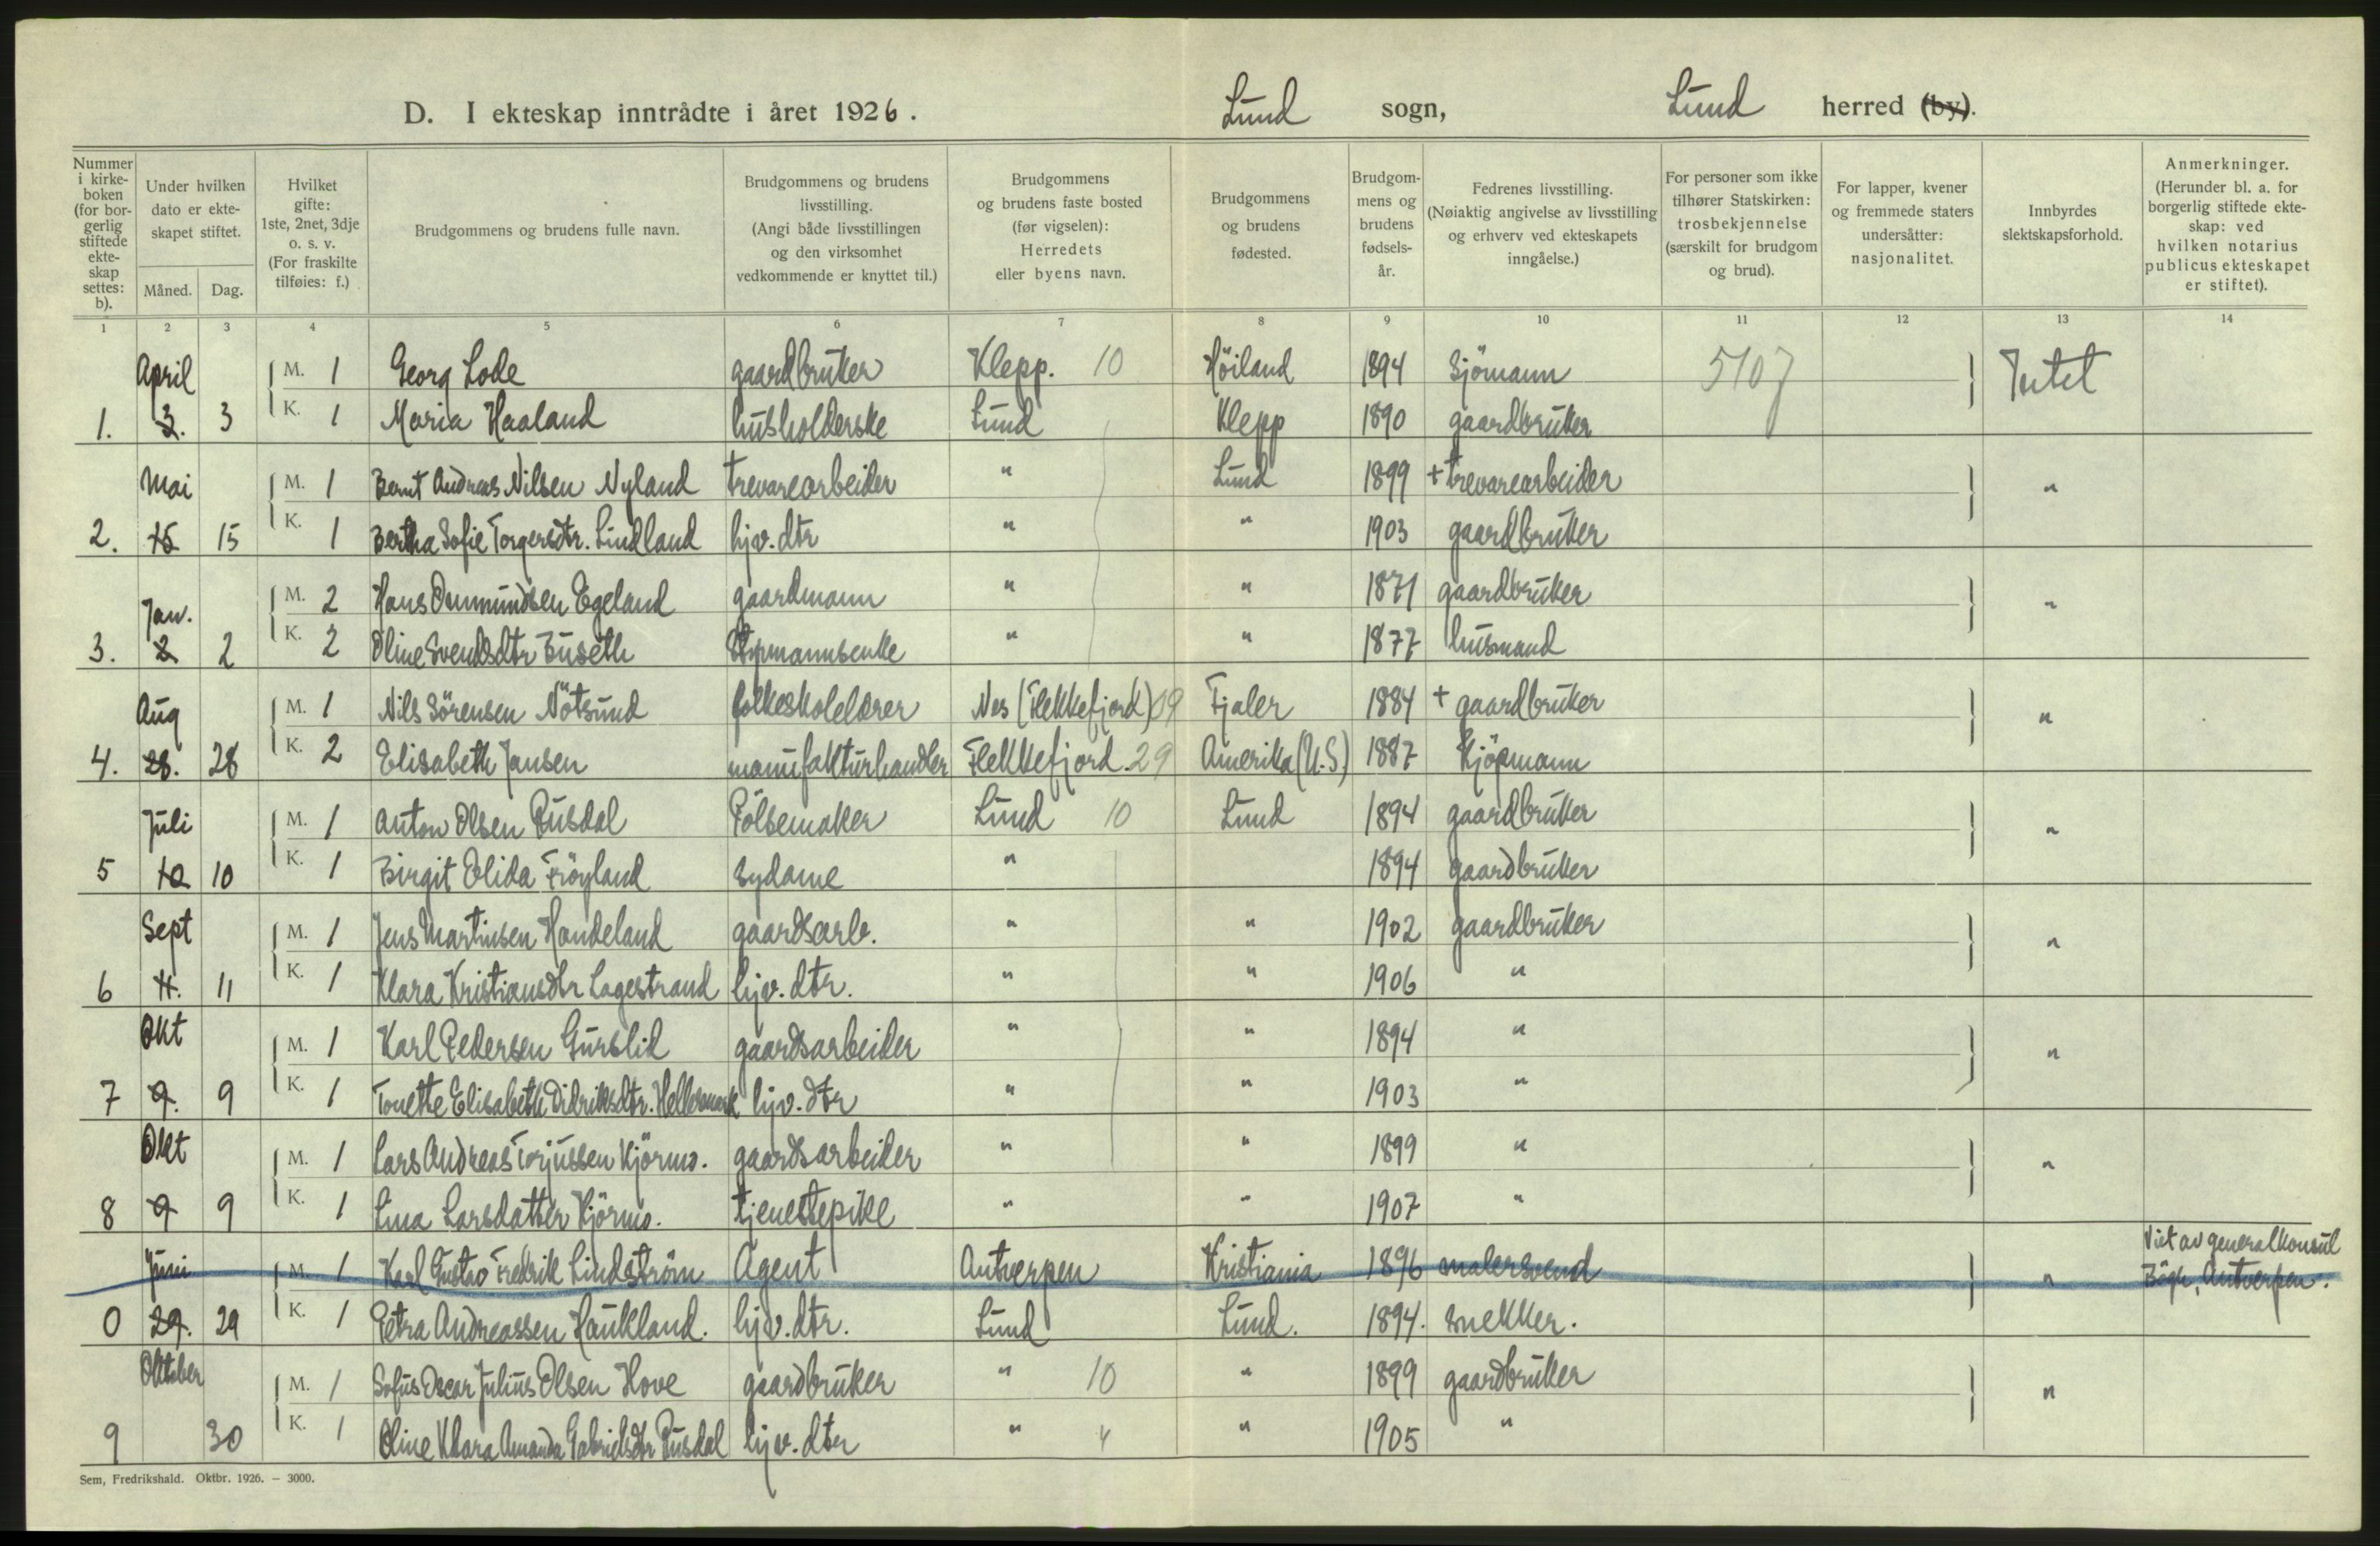 D. I ekteskap inntrådte i året 1926. Lund sogn, Lund herred (by).
Nummer i kirke-boken (for bor-gerlig stiftede ekte-skap settes: b).
Under hvilken dato er ekte-skapet stiftet.
Måned. Dag.
Hvilket gifte: 1ste, 2net, 3dje o. s. v. (For fraskilte tilføies: f.)
Brudgommens og brudens fulle navn.
Brudgommens og brudens livsstilling. (Angi både livsstillingen og den virksomhet vedkommende er knyttet til.)
Brudgommens og brudens faste bosted (før vigselen): Herredets eller byens navn.
Brudgommens og brudens fødested.
Brudgom-mens og brudens fødsels-år.
Fedrenes livsstilling. (Nøiaktig angivelse av livsstilling og erhverv ved ekteskapets inngåelse.)
For personer som ikke tilhører Statskirken: trosbekjennelse (særskilt for brudgom og brud).
For lapper, kvener og fremmede staters undersåtter: nasjonalitet.
Innbyrdes slektskapsforhold.
Anmerkninger. (Herunder bl. a. for borgerlig stiftede ekte-skap: ved hvilken notarius publicus ekteskapet er stiftet).
1 2 3 4 5 6 7 8 9 10 11 12 13 14
April M. 1 Georg Lode gaardbruker Klepp. 10 Höiland 1894 Sjömann 5107 Intet
1. 3. 3 K. 1 Maria Haaland husholderske Lund Klepp 1890 gaardbruker
Mai M. 1 Bernt Andreas Nilsen Nyland trevarearbeider " Lund 1899 + trevarearbeider "
2. 15 15 K. 1 Bertha Sofie Torgersdtr. Lindland hjv. dtr " " 1903 gaardbruker
Jan. M. 2 Hans Osmundsen Egeland gaardmann " " 1871 gaardbruker "
3. 2 2 K. 2 Oline Svendsdtr Buseth " " 1877 husmand
Aug M. 1 Nils Sörensen Nötsund folkeskolelærer Nes (Flekkefjord) 09 Fjaler 1884 + gaardbruker "
4. 28. 28 K. 2 Elisabeth Jansen manufakturhandler Flekkefjord. 29 Amerika (U.S.) 1887 Kjöpmann
Juli M. 1 Anton Olsen Rusdal Pölsemaker Lund 10 Lund 1894 gaardbruker "
5 10 10 K. 1 Birgit Elida Fröyland Sydame " 1894 gaardbruker
Sept M. 1 Jens Martinsen Handeland gaardsarb. " " 1902 gaardbruker "
6 11. 11 K. 1 Klara Kristiansdtr Lagestrand hjv. dtr. " " 1906 "
Okt M. 1 Karl Pedersen Gurslid gaardsarbeider " " 1894 " "
7 9. 9 K. 1 Tonette Elisabeth Didriksdtr. Hellesmark hjv. dtr " " 1903 "
Okt M. 1 Lars Andreas Torjussen Kjörmo. gaardsarbeider " " 1899 " "
8 9 9 K. 1 Lina Larsdatter Kjörmo. tjenestepike " " 1907 "
Juni M. 1 Karl Gustav Fredrik Lindström Agent Antverpen Kristiania 1896 malersvend " Viet av generalkonsul Bögh, Antverpen.
0 29. 29 K. 1 Petra Andreassen Haukland. hjv. dtr. Lund Lund. 1894. snekker.
Oktober M. 1 Sofus Oscar Julius Olsen Hove gaardbruker " 10 " 1899 gaardbruker "
9 30 K. 1 Oline Klara Amanda Gabrielsdtr Rusdal hjv. dtr " 4 " 1905 "
Sem, Fredrikshald. Oktbr. 1926. – 3000.